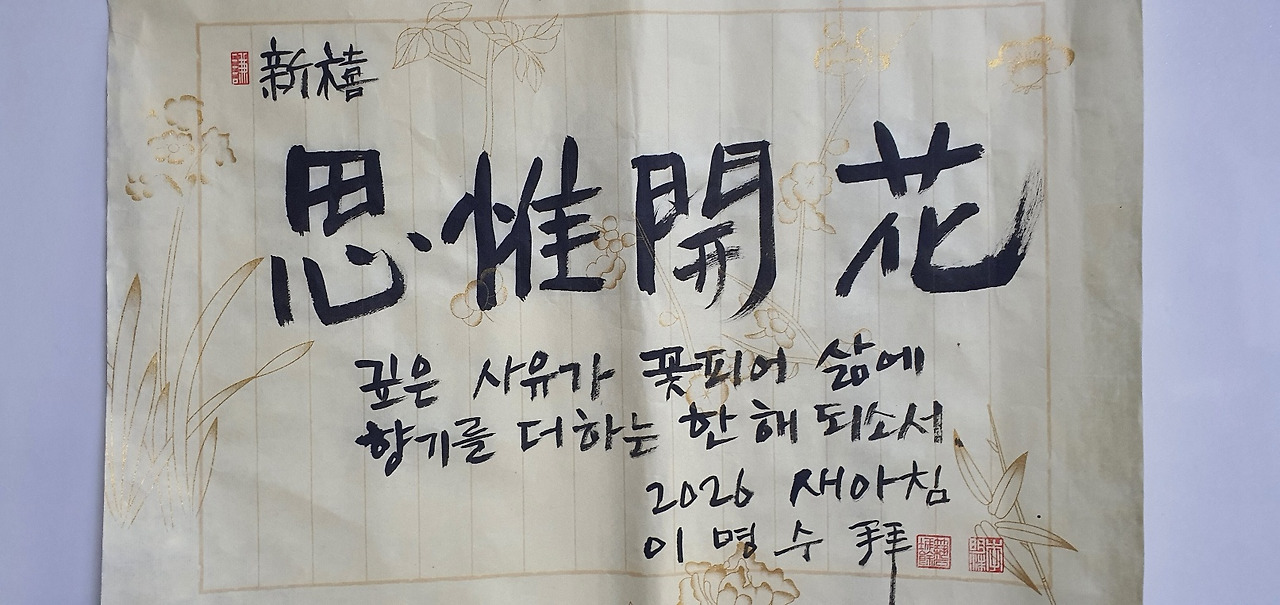 新禧
思惟開花
깊은 사유가 꽃피어 삶에
향기를 더하는 한 해 되소서
2026 새아침
이명수 拜